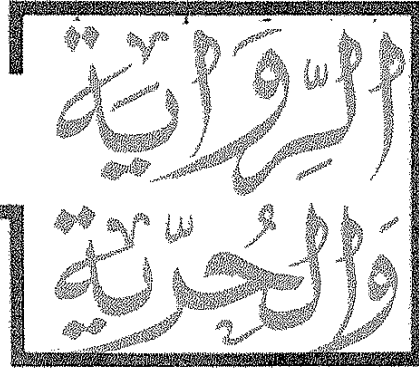 الرِّوَايَة
وَالحُرِّيَة